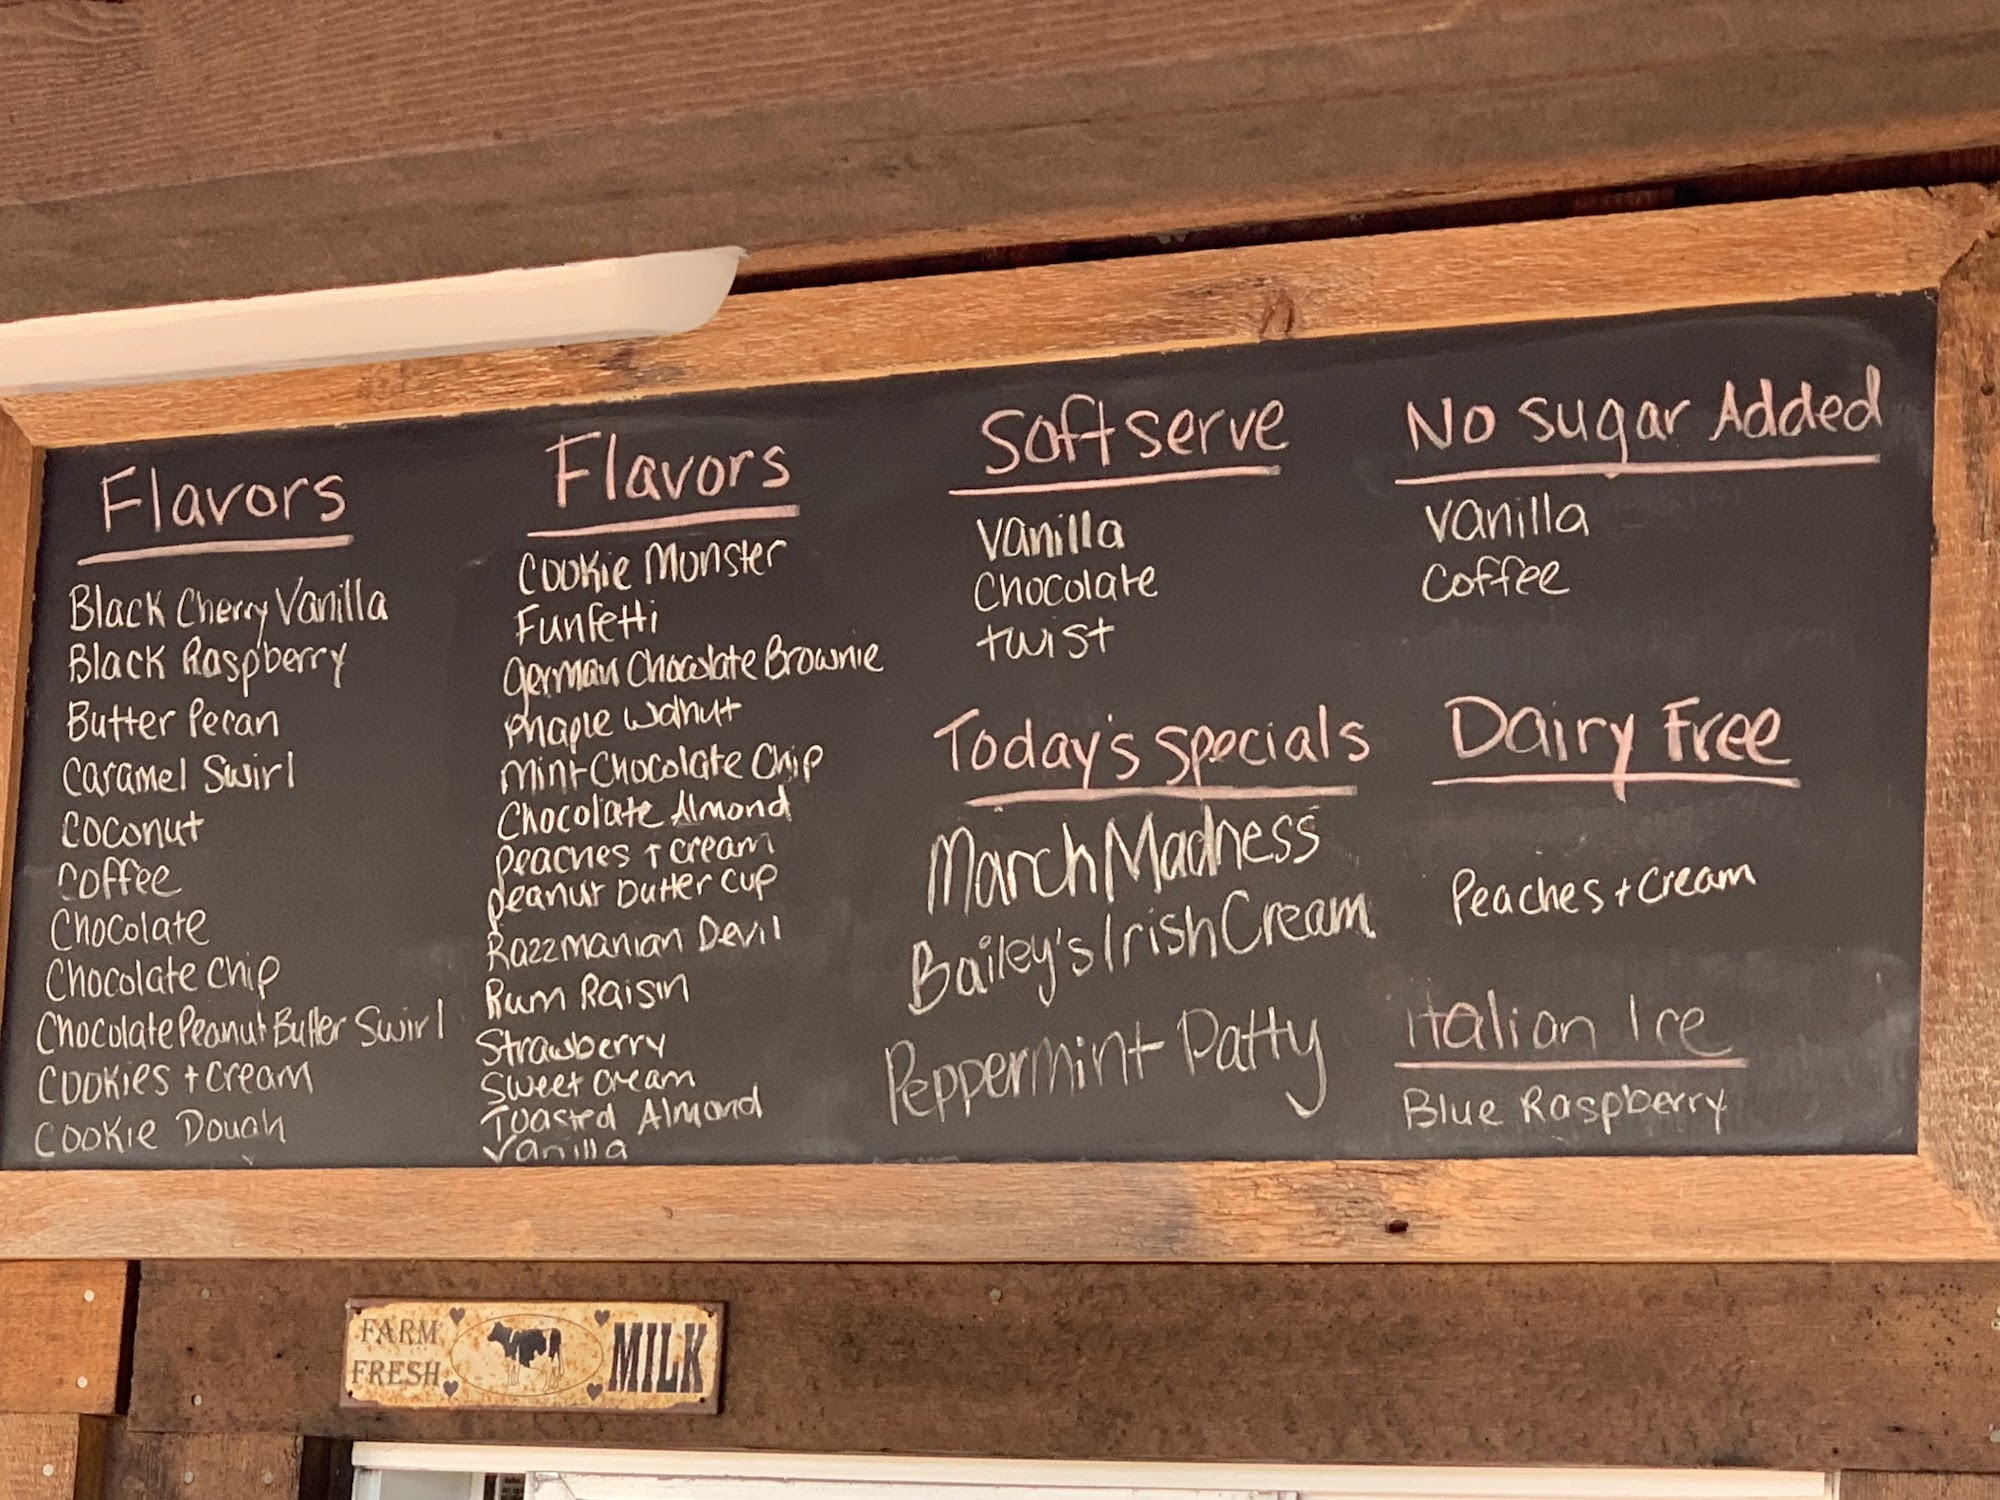 Flavors
Black Cherry Vanilla
Black Raspberry
Butter Pecan
Caramel Swirl
Coconut
Coffee
Chocolate
Chocolate Chip
Chocolate Peanut Butter Swirl
Cookies + Cream
Cookie Dough
Flavors
Cookie Monster
Funfetti
German Chocolate Brownie
Maple Walnut
Mint Chocolate Chip
Chocolate Almond
Peaches + Cream
Peanut Butter Cup
Razzmanian Devil
Rum Raisin
Strawberry
Sweet Cream
Toasted Almond
Vanilla
Soft serve
Vanilla
Chocolate
twist
Today's specials
March Madness
Bailey's Irish Cream
Peppermint Patty
No sugar Added
Vanilla
Coffee
Dairy Free
Peaches + Cream
Italian Ice
Blue Raspberry
FARM FRESH MILK